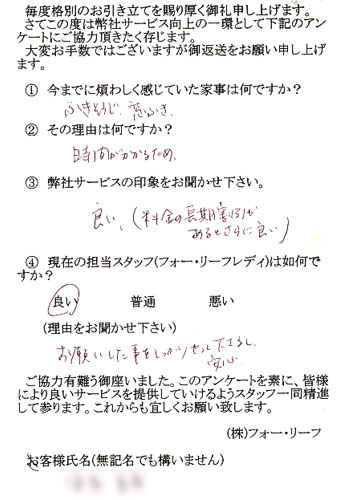 毎度格別のお引き立てを賜り厚く御礼申し上げます。
さてこの度は弊社サービス向上の一環として下記のアン
ケートにご協力頂きたく存じます。
大変お手数ではございますが御返送をお願い申し上げ
ます。
① 今までに煩わしく感じていた家事は何ですか？
ふきそうじ、窓ふき
② その理由は何ですか？
時間がかかるため、
③ 弊社サービスの印象をお聞かせ下さい。
良い、(料金の長期割引が
あるとさらに良い)
④ 現在の担当スタッフ(フォー・リーフレディ)は如何で
すか？
良い 普通 悪い
(理由をお聞かせ下さい)
お願いした事をしっかりやって下さるし、
安心
ご協力有難う御座いました。このアンケートを素に、皆様
により良いサービスを提供していけるようスタッフ一同精進
して参ります。これからも宜しくお願い致します。
(株)フォー・リーフ
お客様氏名(無記名でも構いません)